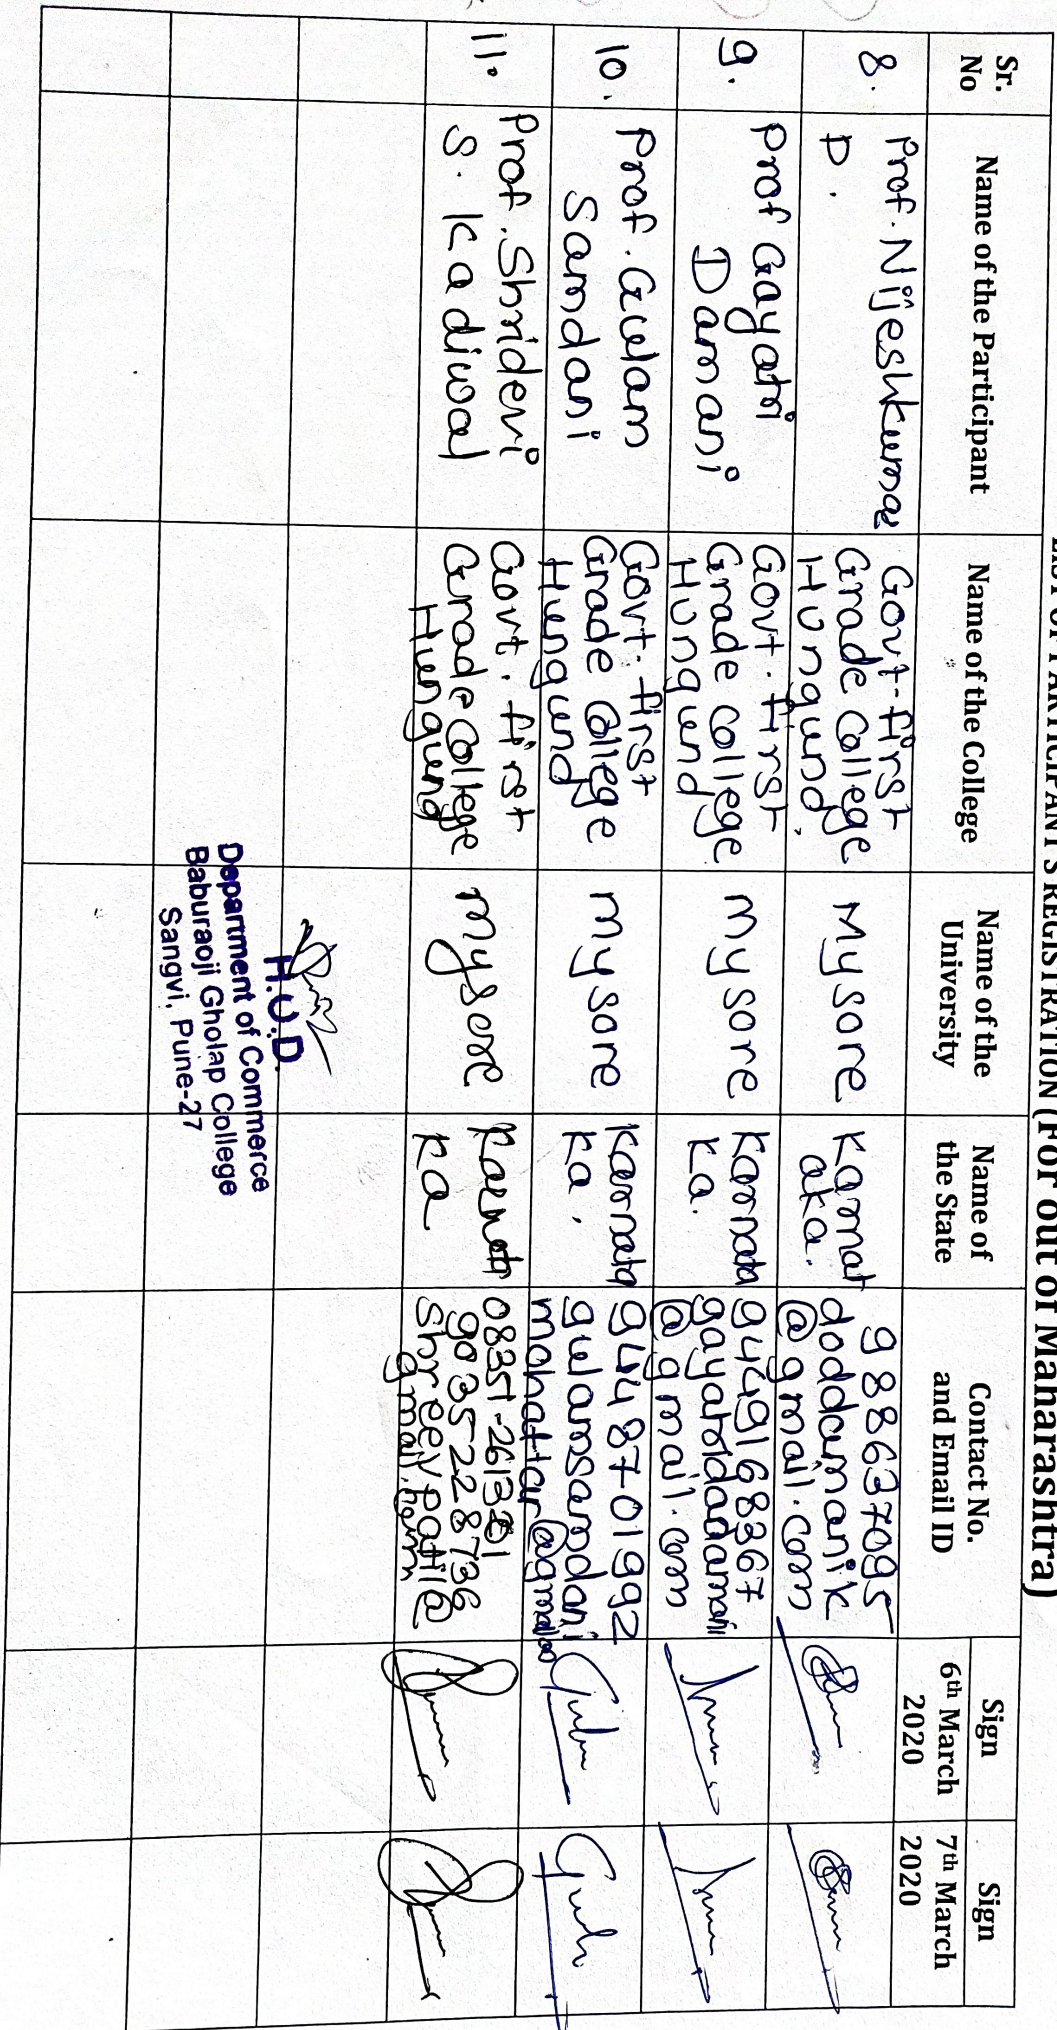 LIST OF PARTICIPANTS REGISTRATION (For out of Maharashtra)
Sr. No
Name of the Participant
Name of the College
Name of the University
Name of the State
Contact No. and Email ID
Sign 6th March 2020
Sign 7th March 2020
8.
Prof. Nijeshkumar
D.
Govt. First
Grade College
Hungund.
Mysore
Karnat
aka.
9886637095
doddamanik
@gmail.com
9.
Prof Gayatri
Damani
Govt. First
Grade College
Hungund
mysore
Karnata
ka.
9449168367
@gmail.com
10.
Prof. Gulam
Samdani
Govt. First
Grade College
Hungund
mysore
Karnata
ka.
9448701992
gulamsamdani
11.
Prof. Shridevi
S. Kadiwal
Govt. First
Grade College
Hungund
mysore
Karnata
ka
9035228736
shreevpatil@
gmail.com
H.O.D.
Department of Commerce
Baburaoji Gholap College
Sangvi, Pune-27